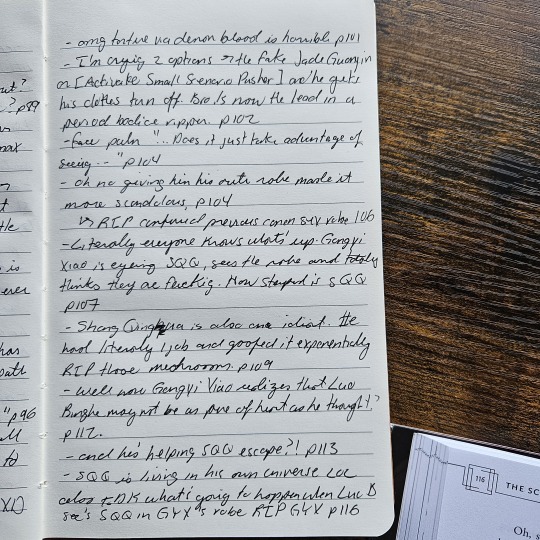 - omg torture via demon blood is horrible p101
- I'm crying 2 options → the fake Jade Guanyin
or [Activate Small Scenario Pusher] and he gets
his clothes torn off. Bro is now the lead in a
period bodice ripper. p102
- face palm "... Does it just take advantage of
seeing -- " p104
- oh no giving him his outer robe made it
more scandalous, p104
↳ RIP confirmed previous canon GYX robe 106
- Literally everyone knows what's up. Gongyi
Xiao is eyeing SQQ, sees the robe and totally
thinks they are fucking. How stupid is SQQ
p107
- Shang Qinghua is also an idiot. He
had literaly 1 job and goofed it exponentially
RIP those mushrooms. p109
- well now Gongyi Xiao realizes that Luo
Binghe may not be as pure of heart as he thought?
p112.
- and he's helping SQQ escape?! p113
- SQQ is living in his own universe LOL
also IDK what's going to happen when Luo B
see's SQQ in GYX's robe RIP GYX p116
out?
? p89
max
t
tle
is
ever
has
" p96
to
XD
116
THE SC
Oh, s